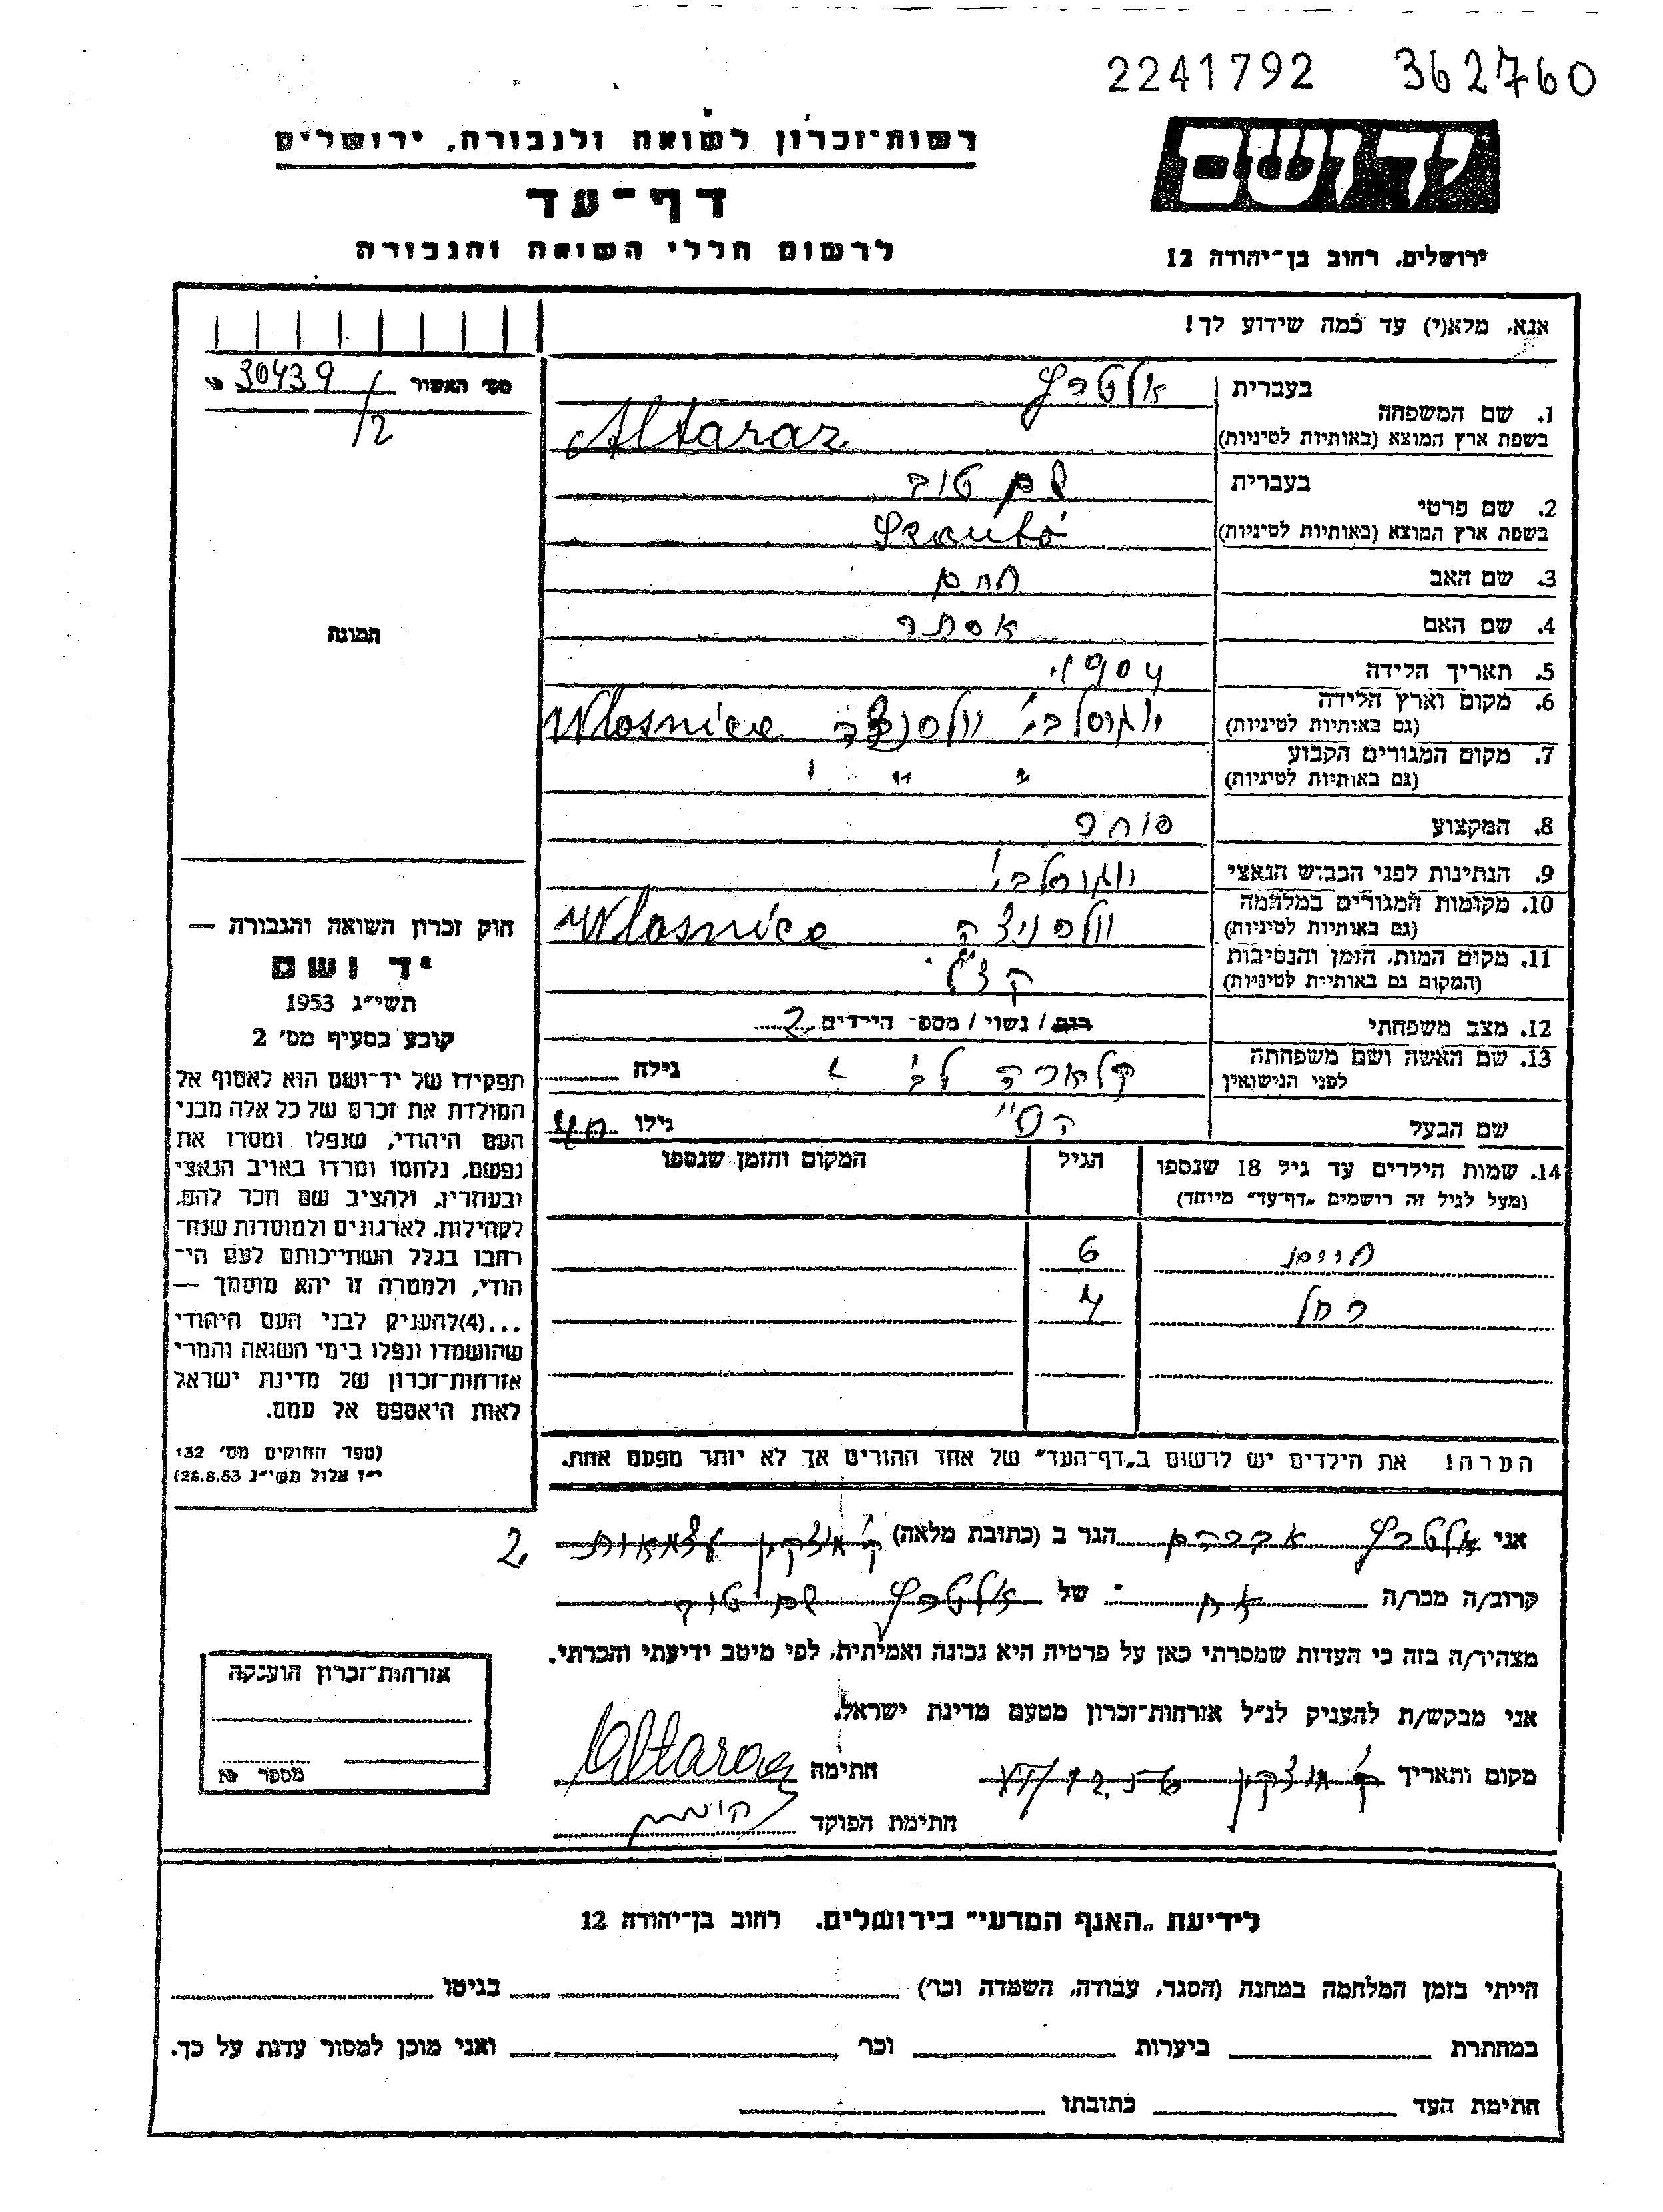 2241792 362760
יד ושם
רשות־זכרון לשואה ולגבורה, ירושלים
דף־עד
לרשום חללי השואה והגבורה
ירושלים, רחוב בן־יהודה 12
אנא, מלא(י) עד כמה שידוע לך!
מס׳ האשור 30439/2 №
בעברית אלטרץ
1. שם המשפחה
בשפת ארץ המוצא (באותיות לטיניות) Altaraz
בעברית שם טוב
2. שם פרטי
בשפת ארץ המוצא (באותיות לטיניות)
3. שם האב
4. שם האם אסתר
5. תאריך הלידה 1904
6. מקום וארץ הלידה
(גם באותיות לטיניות) Wlasnice
7. מקום המגורים הקבוע
(גם באותיות לטיניות) " " "
8. המקצוע סוחר
9. הנתינות לפני הכבוש הנאצי
10. מקומות המגורים במלחמה
(גם באותיות לטיניות) ולסניצה Wlasnice
11. מקום המות, הזמן והנסיבות
(המקום גם באותיות לטיניות)
12. מצב משפחתי רוק / נשוי / מספר הילדים 2
13. שם האשה ושם משפחתה
לפני הנישואין קלארה לוי גילה
שם הבעל גילו
14. שמות הילדים עד גיל 18 שנספו הגיל המקום והזמן שנספו
(מעל לגיל זה רושמים „דף־עד״ מיוחד)
חיים 6
רחל 4
הערה! את הילדים יש לרשום ב„דף־העד״ של אחד ההורים אך לא יותר מפעם אחת.
תמונה
חוק זכרון השואה והגבורה —
יד ושם
תשי״ג 1953
קובע בסעיף מס׳ 2
תפקידו של יד־ושם הוא לאסוף אל
המולדת את זכרם של כל אלה מבני
העם היהודי, שנפלו ומסרו את
נפשם, נלחמו ומרדו באויב הנאצי
ובעוזריו, ולהציב שם וזכר להם,
לקהילות, לארגונים ולמוסדות שנח־
רבו בגלל השתייכותם לעם הי־
הודי, ולמטרה זו יהא מוסמך —
...(4)להעניק לבני העם היהודי
שהושמדו ונפלו בימי השואה והמרי
אזרחות־זכרון של מדינת ישראל
לאות היאספם אל עמם.
(ספר החוקים מס׳ 132
י״ז אלול תשי״ג 28.8.53)
אני אלטרץ אברהם הגר ב (כתובת מלאה) ק׳ מוצקין עצמאות 2
קרוב/ה מכר/ה אח של אלטרץ שם טוב
מצהיר/ה בזה כי העדות שמסרתי כאן על פרטיה היא נכונה ואמיתית, לפי מיטב ידיעתי והכרתי.
אני מבקש/ת להעניק לנ״ל אזרחות־זכרון מטעם מדינת ישראל.
מקום ותאריך ק׳ מוצקין חתימה Altaraz
חתימת הפוקד
אזרחות־זכרון הוענקה
מספר №
לידיעת „האגף המדעי״ בירושלים, רחוב בן־יהודה 12
הייתי בזמן המלחמה במחנה (הסגר, עבודה, השמדה וכו׳) בגיטו
במחתרת ביערות וכו׳ ואני מוכן למסור עדות על כך.
חתימת העד כתובתו